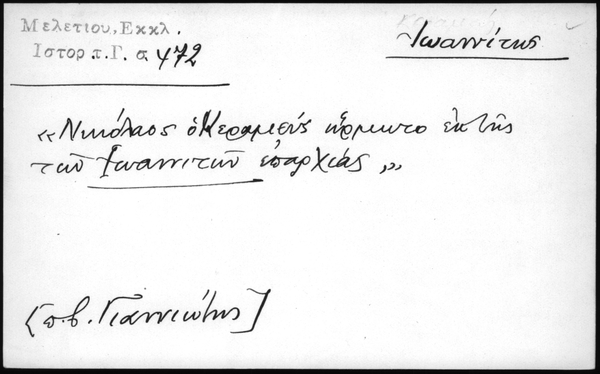 Μελετίου, Εκκλ.
Ιστορ.τ.Γ. σ. 472
Ἰωαννίτης
«Νικόλαος ὁ Κεραμεύς ὥρμωτο ἐκ τῆς
τῶν Ἰωαννιτῶν ἐπαρχίας,,
[π.β. Γιαννιώτης]